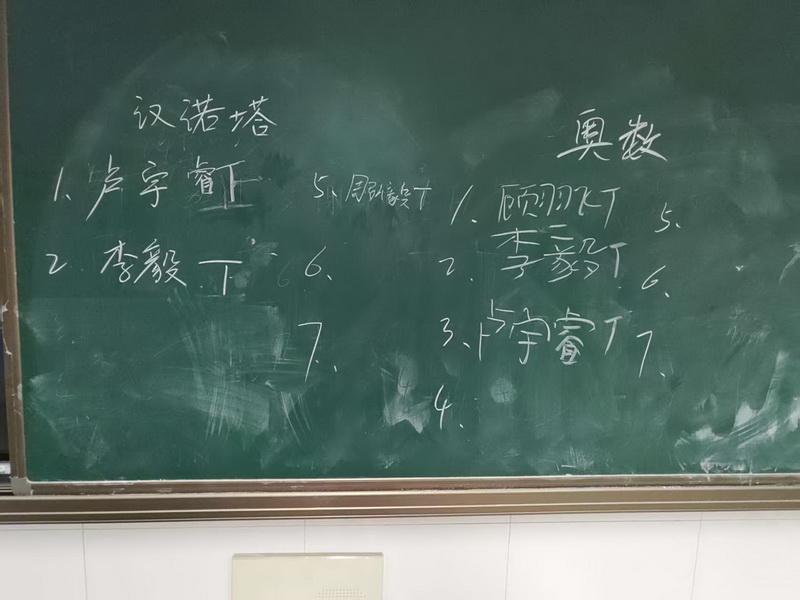 汉诺塔
1. 卢宇睿T
2. 李毅T
5. 周毅T
6.
7.
奥数
1. 顾羽飞T
2. 李毅T
3. 卢宇睿T
4.
5.
6.
7.